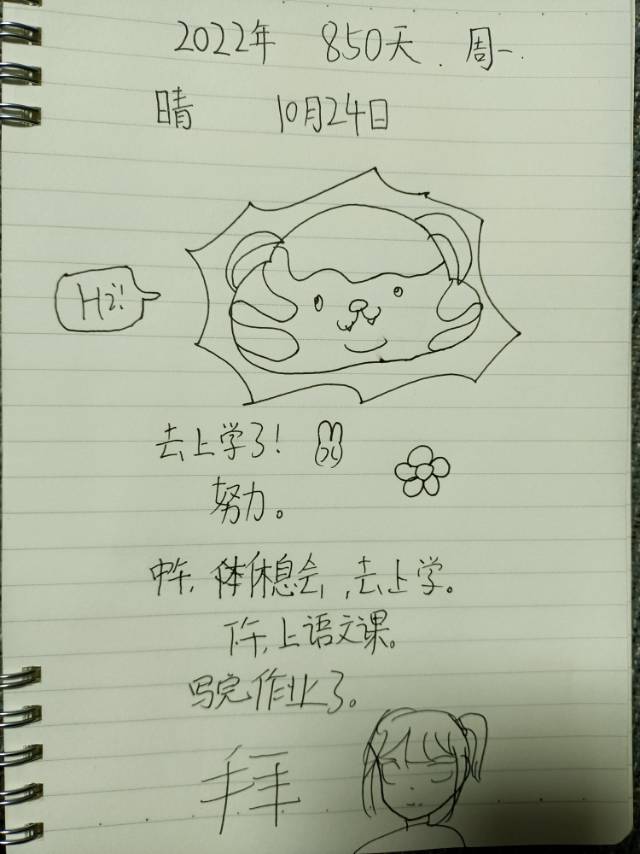 2022年 850天. 周一.
晴 10月24日
Hi!
去上学了!
努力。
中午, 休息会, 去上学。
下午, 上语文课。
写完作业了。
拜